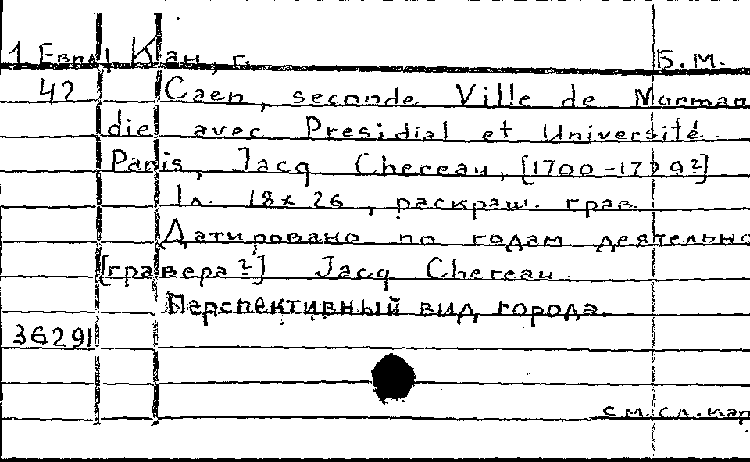 1 Евр. Кан, г. Б.М.
42 Caen, seconde Ville de Norman
die avec Presidial et Université
Paris, Jacq Chereau, [1700-1729?]
1л. 18x26, раскраш. грав.
Датировано по годам деятельно
[гравера?] Jacq Chereau
Перспективный вид города.
36291
см.сл.кар